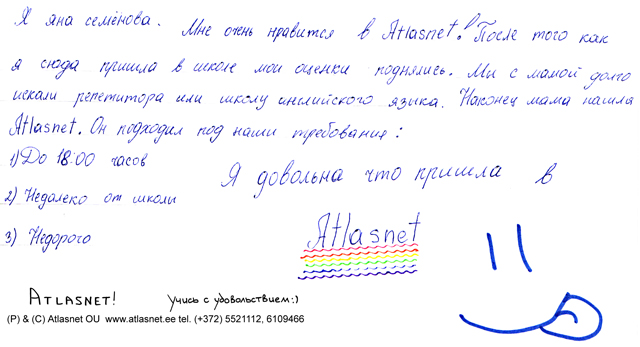 Я яна семёнова. Мне очень нравится в Atlasnet! После того как
я сюда пришла в школе мои оценки поднялись. Ми с мамой долго
искали репетитора или школу английского языка. Наконец мама нашла
Atlasnet. Он подходил под наши требования:
1) До 18:00 часов
2) Недалеко от школы
3) Недорого
Я довольна что пришла в
Atlasnet
ATLASNET! Учись с удовольствием:)
(P) & (C) Atlasnet OU www.atlasnet.ee tel. (+372) 5521112, 6109466